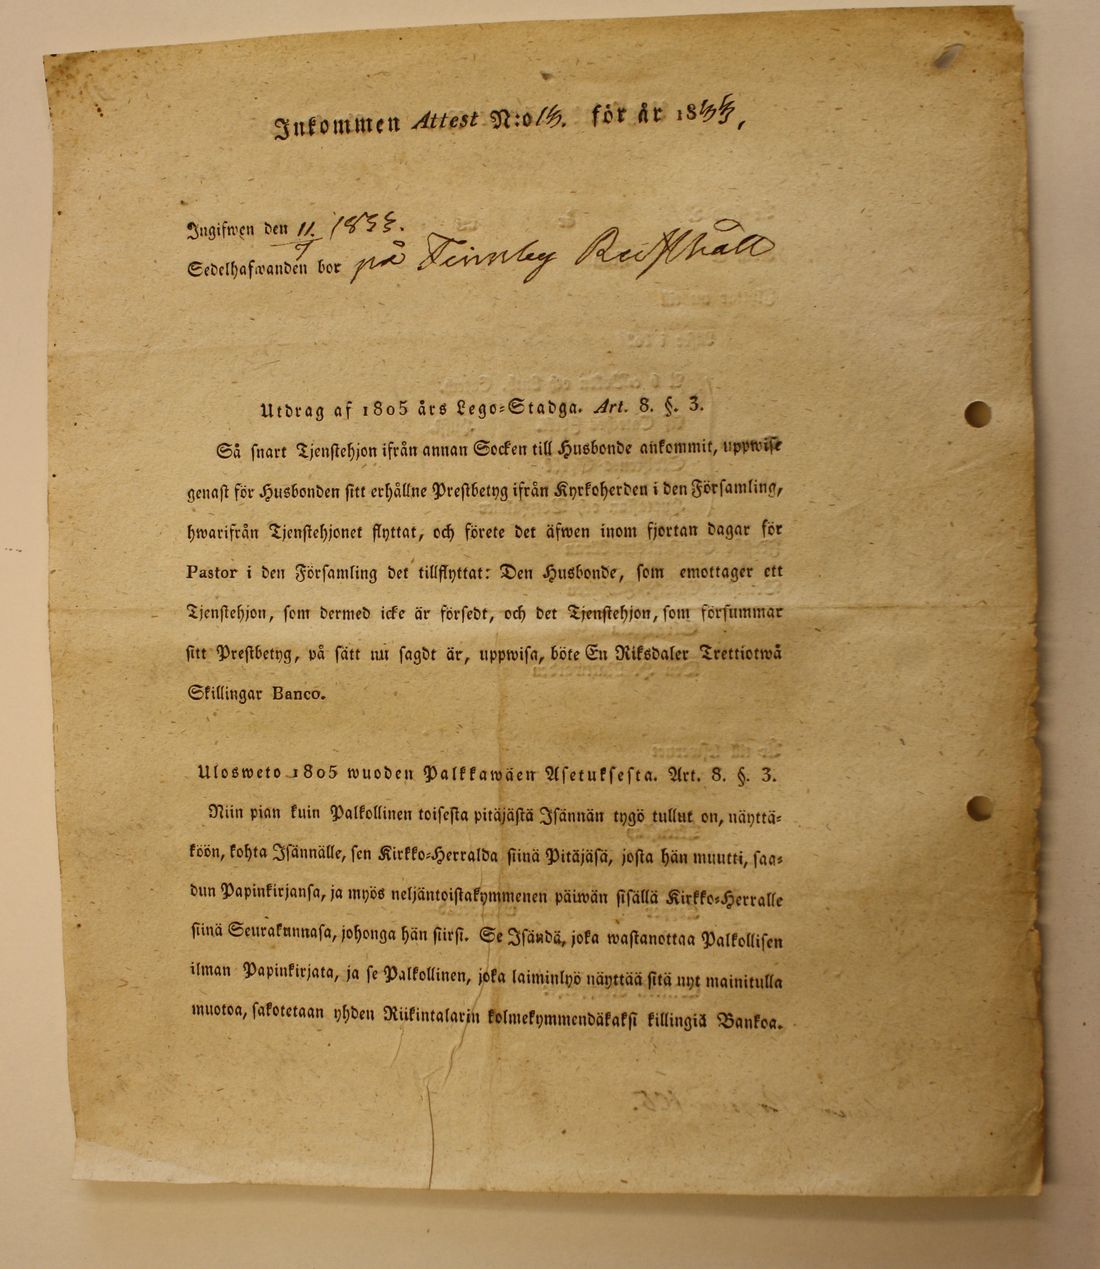 Inkommen Attest N:o 13. för år 1833,
Ingifwen den 11/7 1833.
Sedelhafwanden bor på Finnby Rusthåll
Utdrag af 1805 års Lego=Stadga. Art. 8. §. 3.
Så snart Tjenstehjon ifrån annan Socken till Husbonde ankommit, uppwise
genast för Husbonden sitt erhållne Prestbetyg ifrån Kyrkoherden i den Församling,
hwarifrån Tjenstehjonet flyttat, och förete det äfwen inom fjortan dagar för
Pastor i den Församling det tillflyttat: Den Husbonde, som emottager ett
Tjenstehjon, som dermed icke är försedt, och det Tjenstehjon, som försummar
sitt Prestbetyg, på sätt nu sagdt är, uppwisa, böte En Riksdaler Trettiotwå
Skillingar Banco.
Ulosweto 1805 wuoden Palkkawäen Asetuksesta. Art. 8. §. 3.
Niin pian kuin Palkollinen toisesta pitäjästä Isännän tygö tullut on, näyttä=
köön, kohta Isännälle, sen Kirkko=Herralda siinä Pitäjäsä, josta hän muutti, saa=
dun Papinkirjansa, ja myös neljäntoistakymmenen päiwän sisällä Kirkko=Herralle
siinä Seurakunnasa, johonga hän siirsi. Se Isändä, joka wastanottaa Palkollisen
ilman Papinkirjata, ja se Palkollinen, joka laiminlyö näyttää sitä nyt mainitulla
muotoa, sakotetaan yhden Riikintalarin kolmekymmendäkaksi killingiä Bankoa.